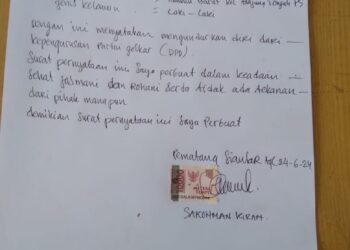 jenis Kelamin : Laki - Laki
Dengan ini menyatakan mengundurkan diri dari -
Kepengurusan Partai Golkar (DPD).
Surat pernyataan ini Saya perbuat dalam keadaan -
Sehat Jasmani dan Rohani Serta tidak ada tekanan -
dari pihak manapun
demikian Surat pernyataan ini Saya Perbuat
Pematang Siantar tgl 24-6-24